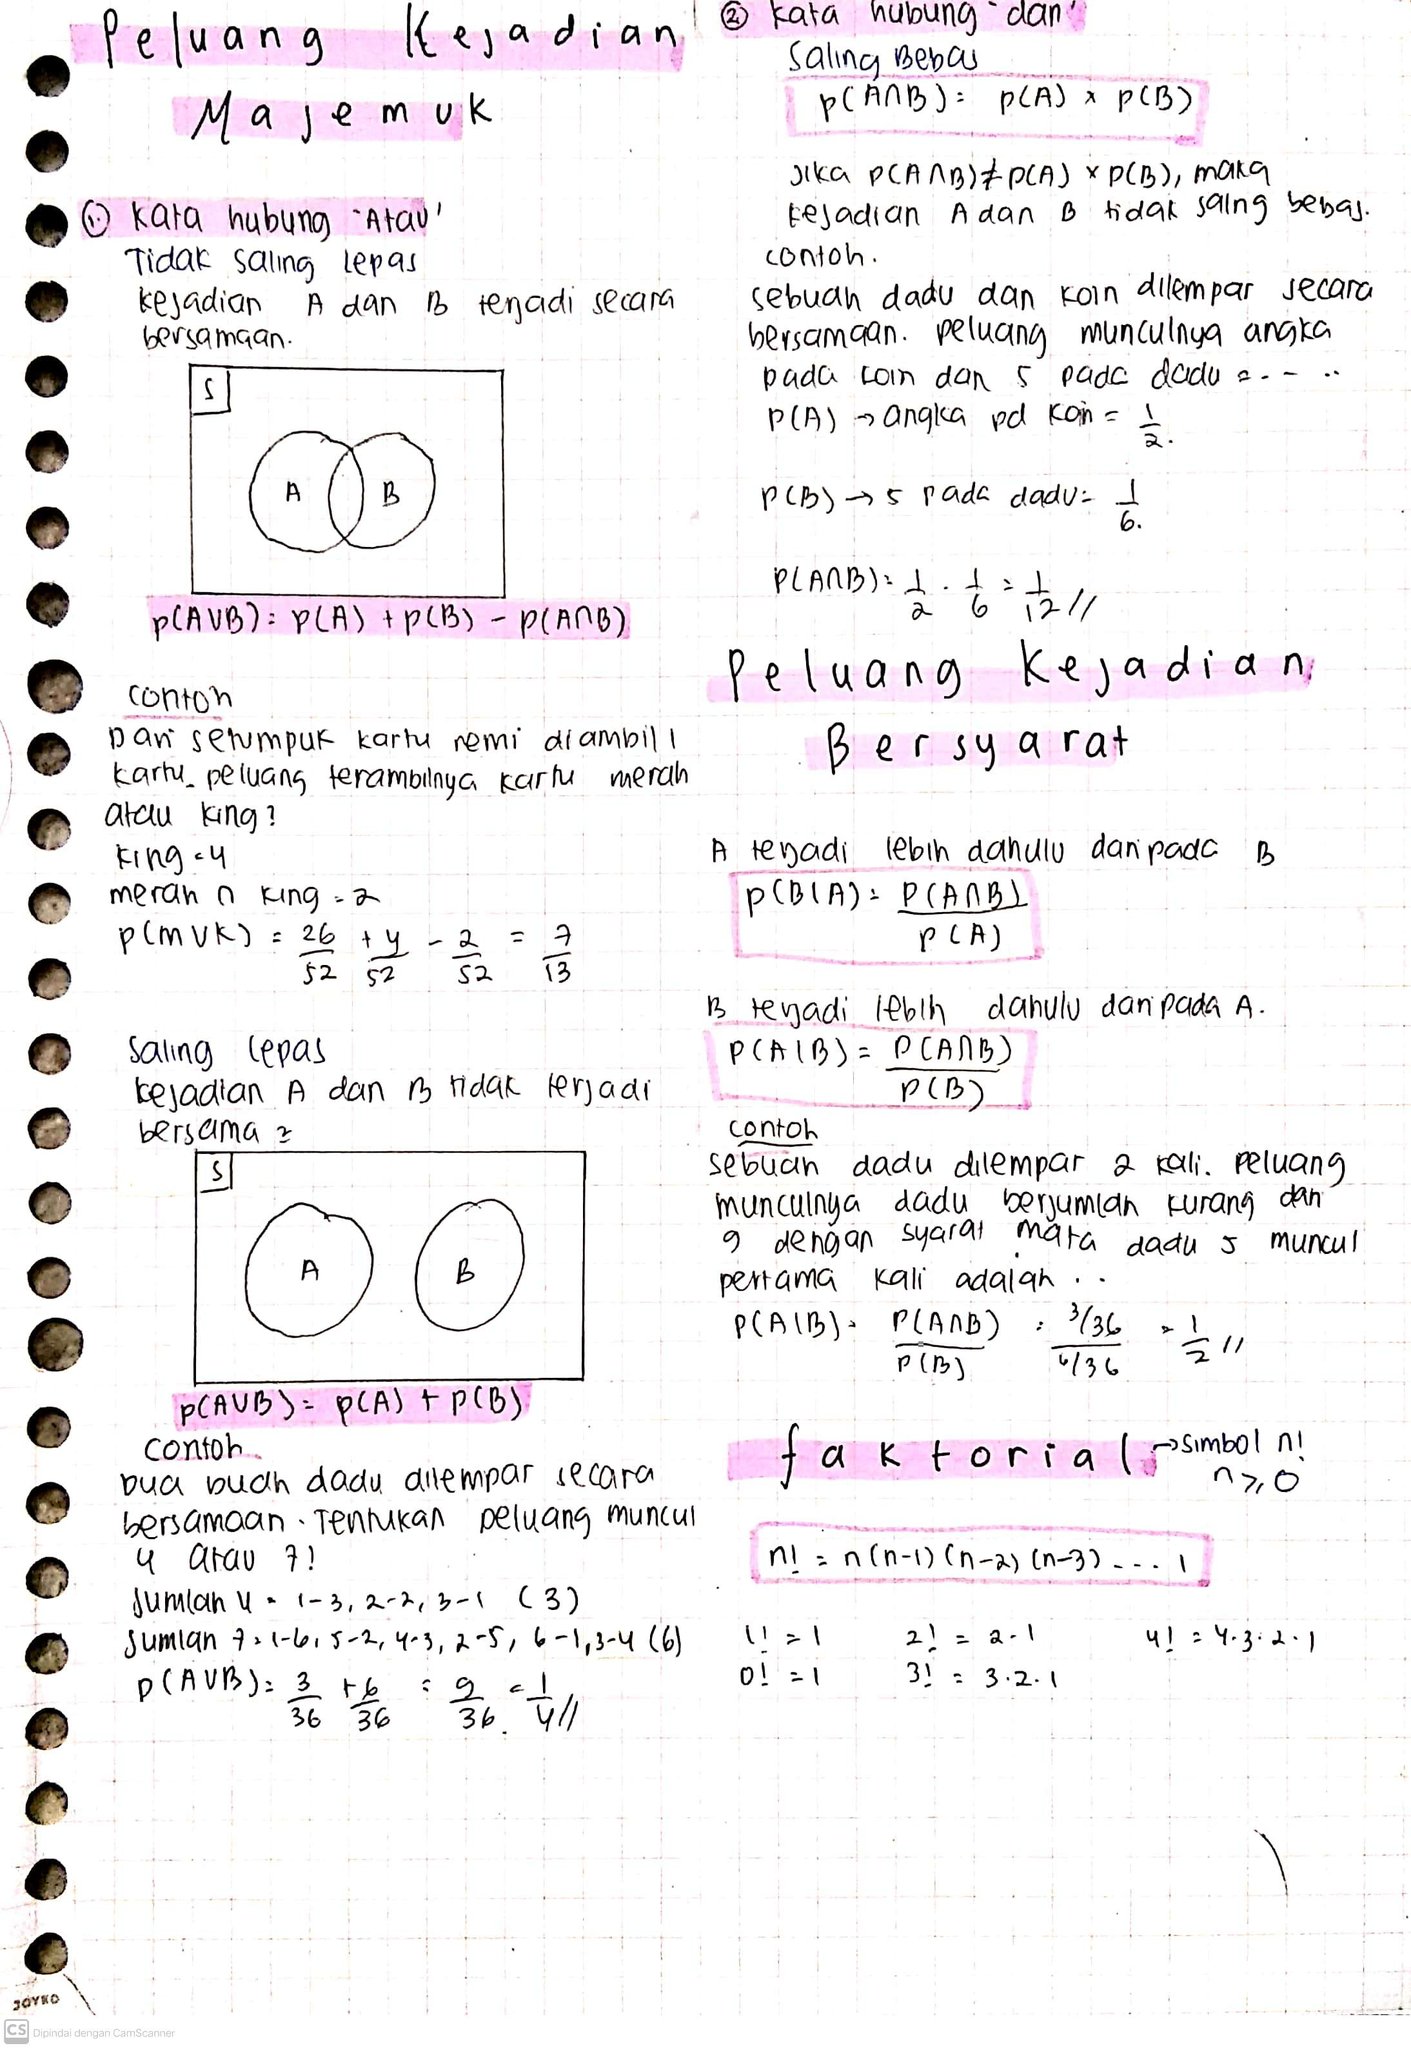 Peluang Kejadian
Majemuk
1. Kata hubung "Atau"
Tidak saling lepas
kejadian A dan B terjadi secara
bersamaan.
S
A B
P(A∪B) = P(A) + P(B) - P(A∩B)
contoh
Dari setumpuk kartu remi diambil 1
kartu. peluang terambilnya kartu merah
atau king?
King = 4
merah ∩ king = 2
P(M∪K) = 26/52 + 4/52 - 2/52 = 7/13
Saling Lepas
kejadian A dan B tidak terjadi
bersama2
S
A B
P(A∪B) = P(A) + P(B)
contoh
Dua buah dadu dilempar secara
bersamaan. Tentukan peluang muncul
4 atau 7!
Jumlah 4 = 1-3, 2-2, 3-1 (3)
Jumlah 7 = 1-6, 5-2, 4-3, 2-5, 6-1, 3-4 (6)
P(A∪B) = 3/36 + 6/36 = 9/36 = 1/4 //
2 Kata hubung "dan"
Saling Bebas
P(A∩B) = P(A) x P(B)
Jika P(A∩B) ≠ P(A) x P(B), maka
kejadian A dan B tidak saling bebas.
contoh.
sebuah dadu dan koin dilempar secara
bersamaan. peluang munculnya angka
pada koin dan 5 pada dadu = ....
P(A) → angka pd koin = 1/2.
P(B) → 5 pada dadu = 1/6.
P(A∩B) = 1/2 . 1/6 = 1/12 //
Peluang Kejadian
Bersyarat
A terjadi lebih dahulu daripada B
P(B|A) = P(A∩B)/P(A)
B terjadi lebih dahulu daripada A.
P(A|B) = P(A∩B)/P(B)
contoh
sebuah dadu dilempar 2 kali. Peluang
munculnya dadu berjumlah kurang dari
9 dengan syarat mata dadu 5 muncul
pertama kali adalah ..
P(A|B) = P(A∩B)/P(B) = 3/36 / 6/36 = 1/2 //
faktorial → simbol n!
n ≥ 0
n! = n (n-1) (n-2) (n-3) .... 1
1! = 1 2! = 2.1 4! = 4.3.2.1
0! = 1 3! = 3.2.1
JOYKO
CS Dipindai dengan CamScanner